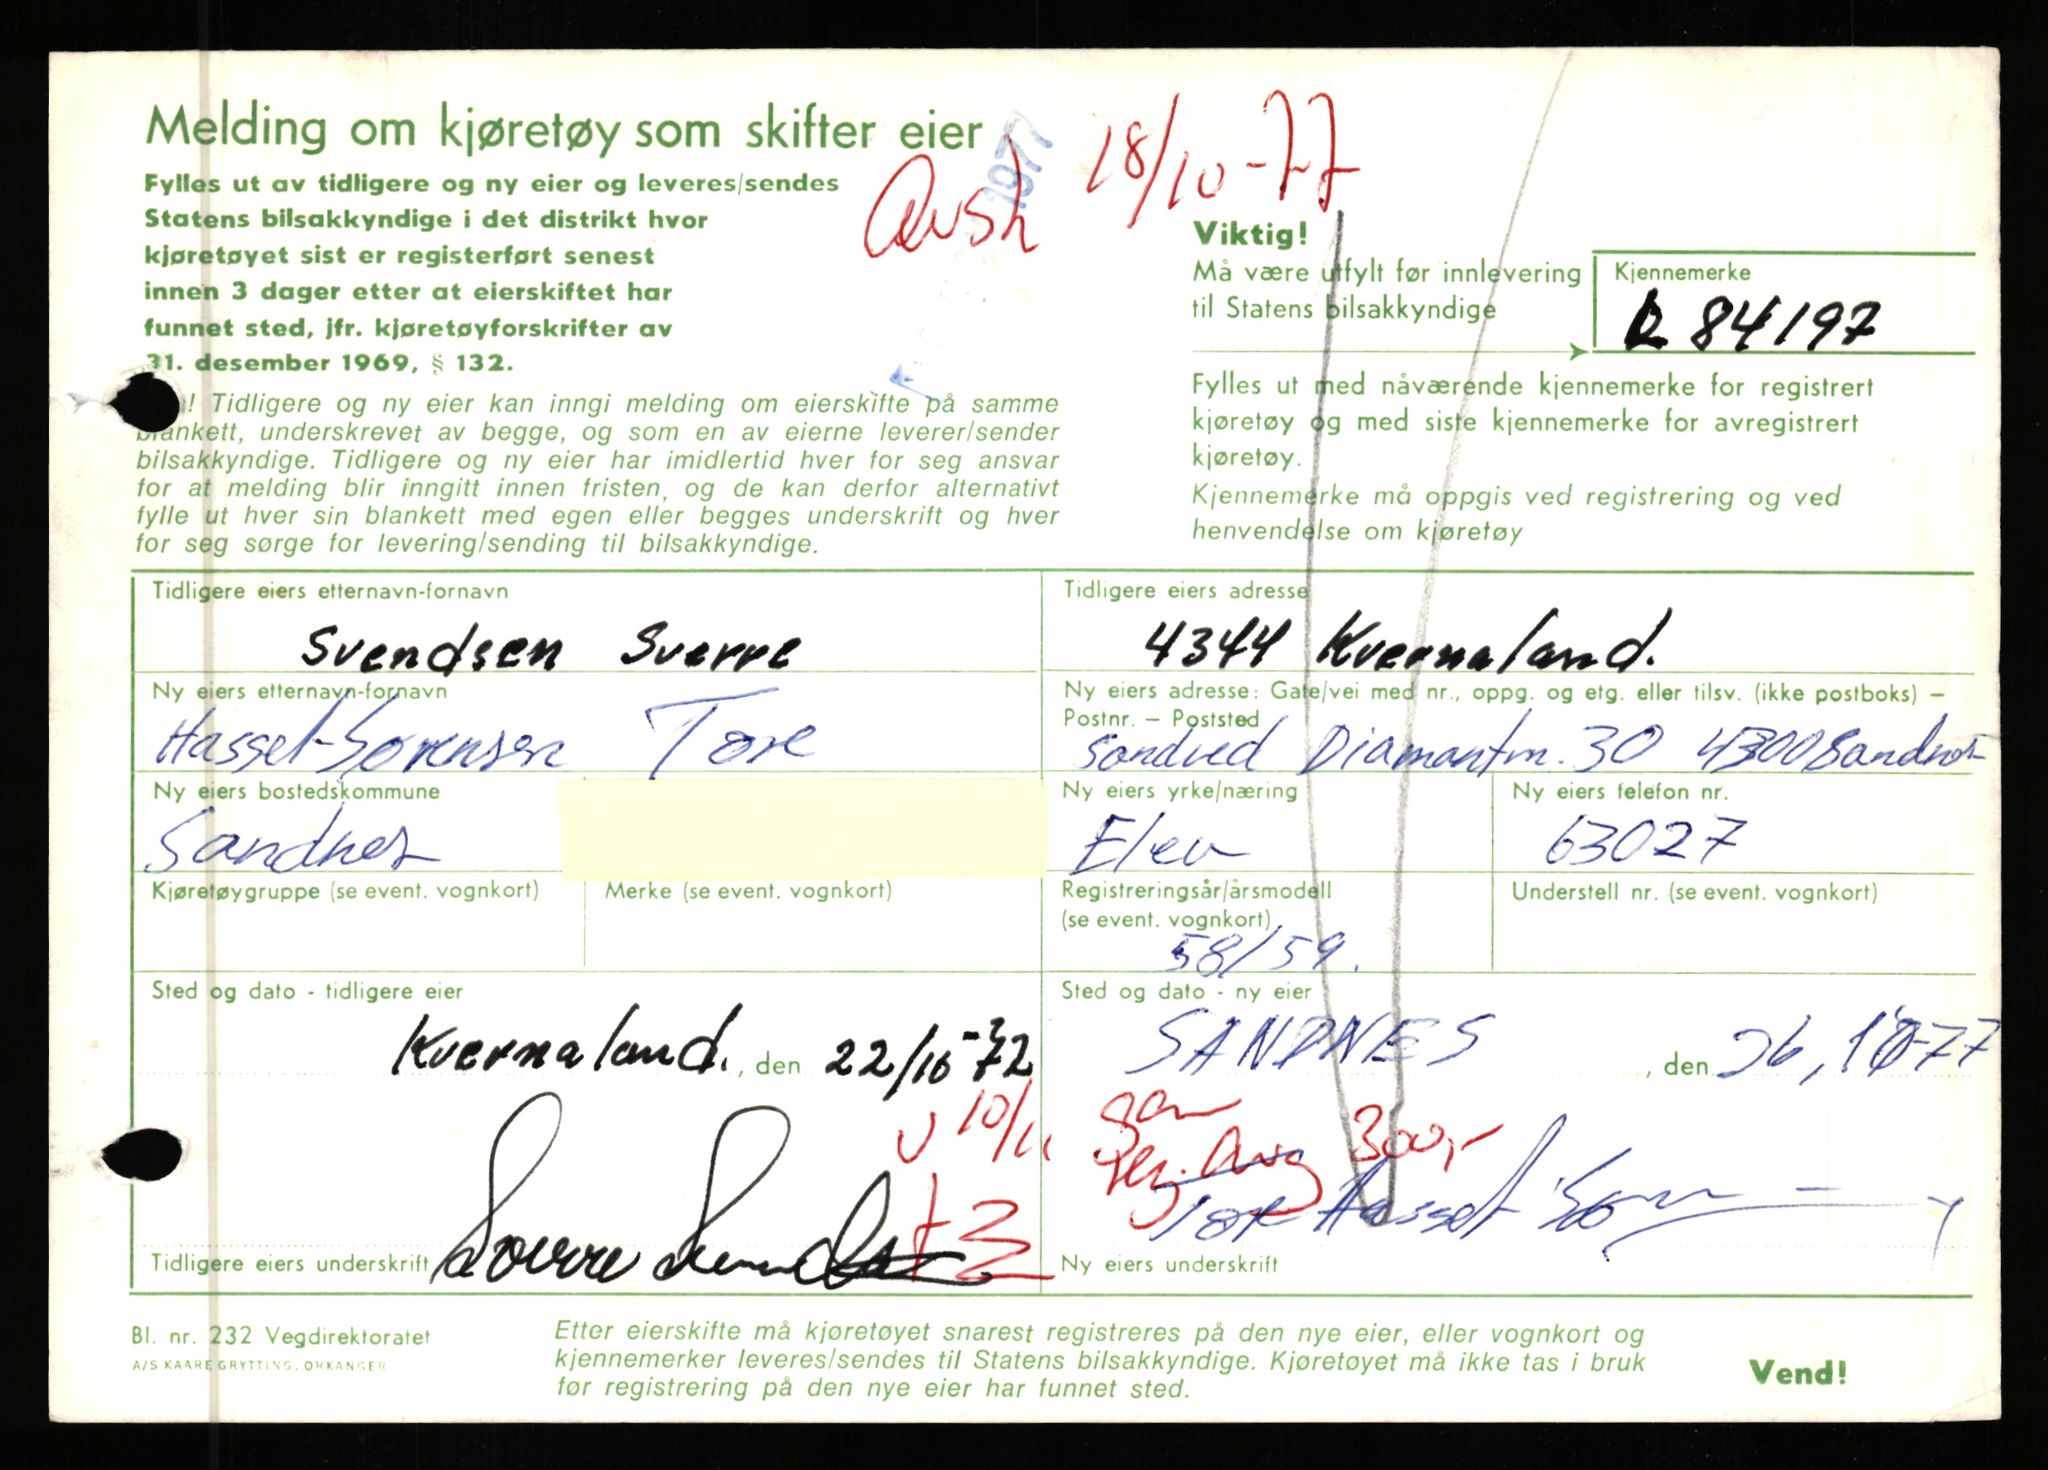 Melding om kjøretøy som skifter eier
1977
Avsk 18/10-77
Fylles ut av tidligere og ny eier og leveres/sendes
Statens bilsakkyndige i det distrikt hvor
kjøretøyet sist er registerført senest
innen 3 dager etter at eierskiftet har
funnet sted, jfr. kjøretøyforskrifter av
31. desember 1969, § 132.
! Tidligere og ny eier kan inngi melding om eierskifte på samme
blankett, underskrevet av begge, og som en av eierne leverer/sender
bilsakkyndige. Tidligere og ny eier har imidlertid hver for seg ansvar
for at melding blir inngitt innen fristen, og de kan derfor alternativt
fylle ut hver sin blankett med egen eller begges underskrift og hver
for seg sørge for levering/sending til bilsakkyndige.
Viktig!
Må være utfylt før innlevering
til Statens bilsakkyndige
Kjennemerke
R 84197
Fylles ut med nåværende kjennemerke for registrert
kjøretøy og med siste kjennemerke for avregistrert
kjøretøy.
Kjennemerke må oppgis ved registrering og ved
henvendelse om kjøretøy
Tidligere eiers etternavn-fornavn
Svendsen Sverre
Tidligere eiers adresse
4344 Kvernaland.
Ny eiers etternavn-fornavn
Hassel-Sørensen Tore
Ny eiers adresse: Gate/vei med nr., oppg. og etg. eller tilsv. (ikke postboks) –
Postnr. – Poststed
Sandved Diamantvn. 30 4300 Sandnes
Ny eiers bostedskommune
Sandnes
Ny eiers yrke/næring
Elev
Ny eiers felefon nr.
63027
Kjøretøygruppe (se event. vognkort)
Merke (se event. vognkort)
Registreringsår/årsmodell
(se event. vognkort)
58/59.
Understell nr. (se event. vognkort)
Sted og dato - tidligere eier
Kvernaland. , den 22/10-72
Sted og dato - ny eier
SANDNES , den 26, 10-77
v 10/11
300,-
Tidligere eiers underskrift Sverre Svendsen
Ny eiers underskrift Tore Hassel
Bl. nr. 232 Vegdirektoratet
A/S KAARE GRYTTING, ORKANGER
Etter eierskifte må kjøretøyet snarest registreres på den nye eier, eller vognkort og
kjennemerker leveres/sendes til Statens bilsakkyndige. Kjøretøyet må ikke tas i bruk
før registrering på den nye eier har funnet sted.
Vend!